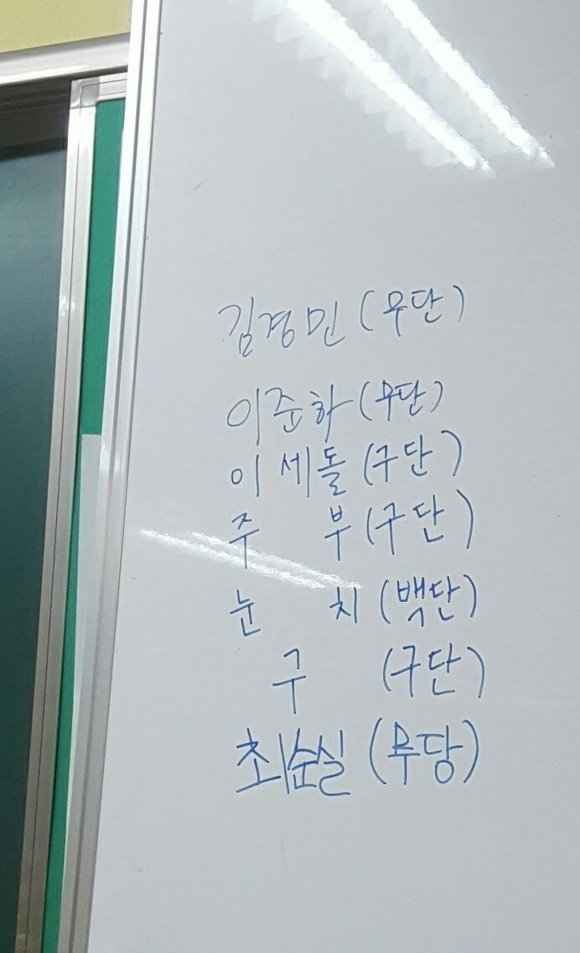 김경민 (무단)
이준하 (무단)
이세돌 (구단)
주 부 (구단)
눈 치 (백단)
구 (구단)
최순실 (무당)